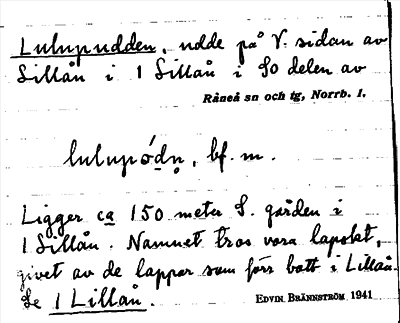 Lulupudden, udde på V. sidan av
Lillån i 1 Lillån i SO delen av
Råneå sn och tg, Norrb. l.
lulupó́dn̥, bf. m.
Ligger ca 150 meter S. gården i
1 Lillån. Namnet tros vara lapskt,
givet av de lappar som förr bott i Lillån.
Se 1 Lillån.
EDVIN BRÄNNSTRÖM 1941